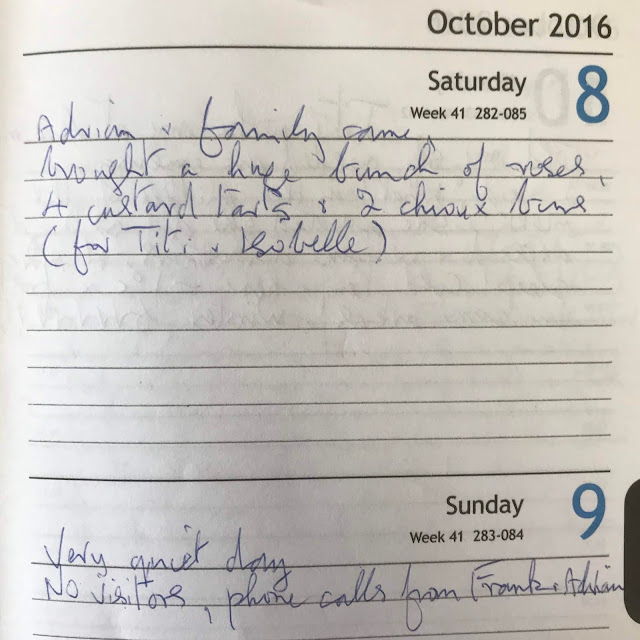 October 2016
Saturday 8
Week 41 282-085
Adrian & family came,
brought a huge bunch of roses,
4 custard tarts & 2 chioux buns
(for Titi & Isobelle)
Sunday 9
Week 41 283-084
Very quiet day
No visitors, phone calls from Frank & Adrian